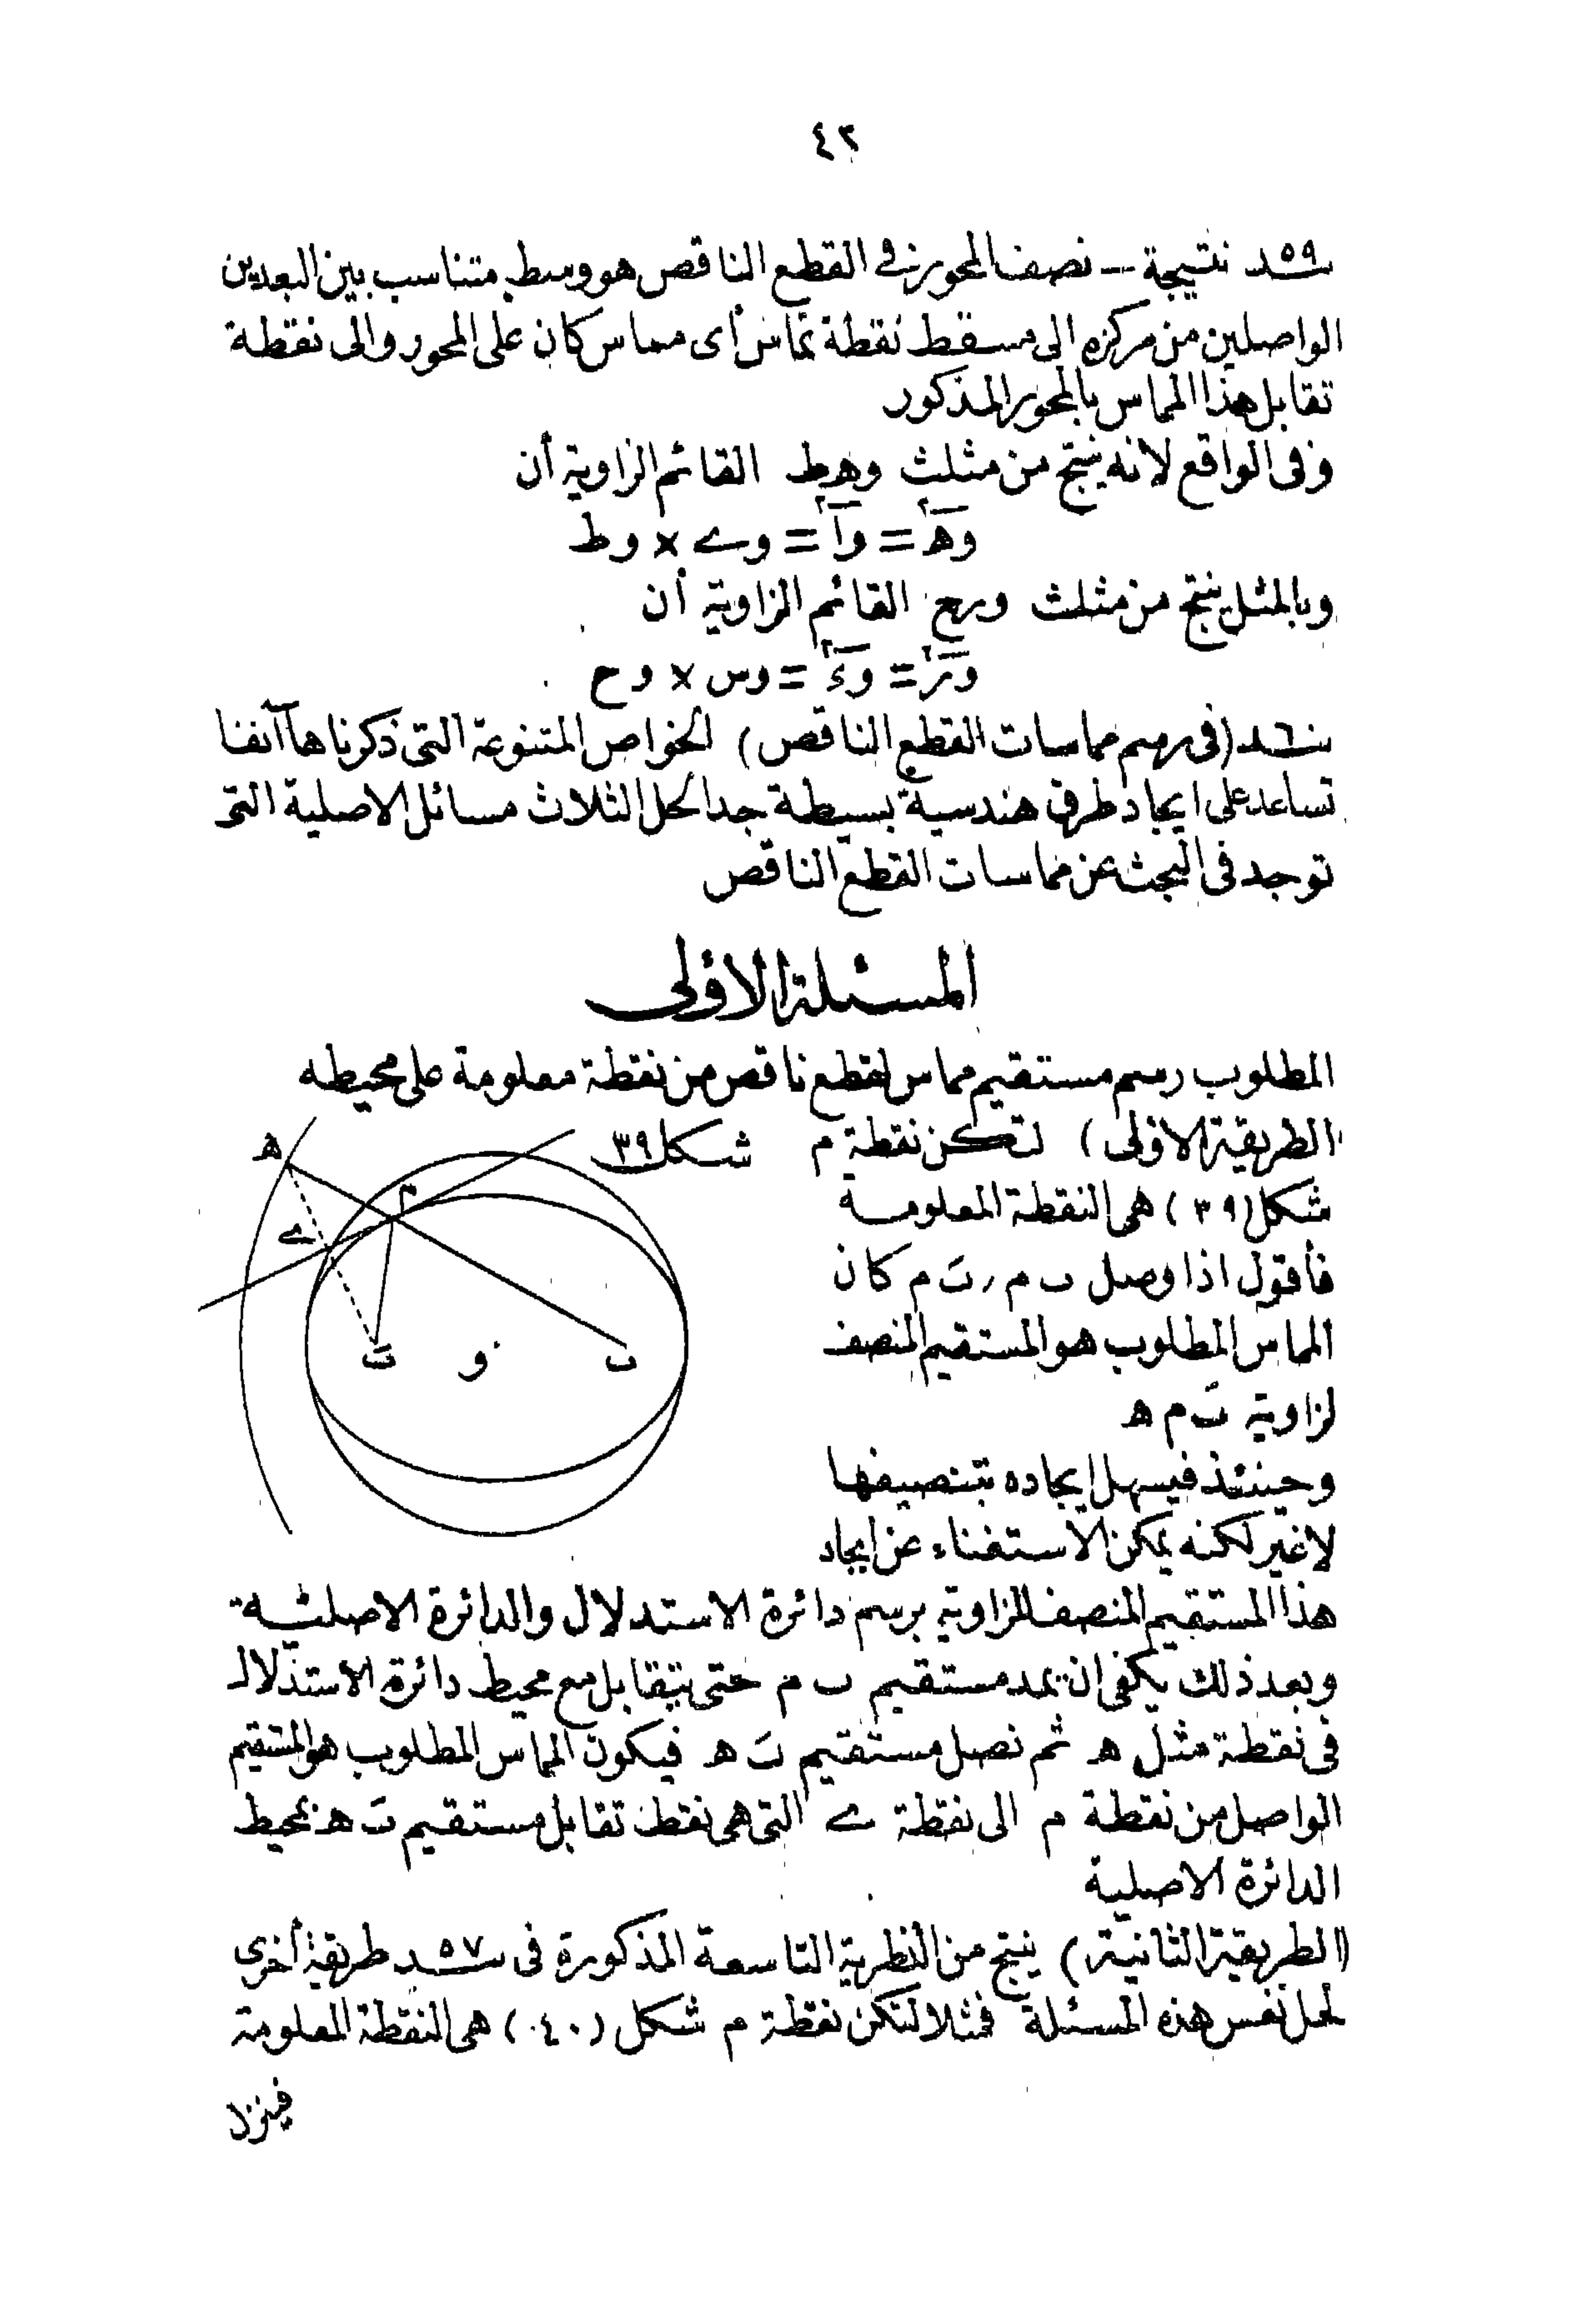 ٤٢
٥٩ـد نتيجة — نصف المحور في القطع الناقص هو وسط متناسب بين البعدين
الواصلين من مركزه الى مسقط نقطة تماس أى مماس كان على المحور والى نقطة
تقابل هذا المماس بالمحور المذكور
وفى الواقع لانه ينتج من مثلث وهط القائم الزاوية أن
وه٢ = وا٢ = وے × وط
وبالمثل ينتج من مثلث ورع القائم الزاوية أن
ور٢ = وء٢ = وس × وح
٦٠ـد (فى رسم مماسات القطع الناقص) الخواص المتنوعة التى ذكرناها آنفا
تساعد على ايجاد طرق هندسية بسيطة جدا لحل الثلاث مسائل الاصلية التى
توجد فى البحث عن مماسات القطع الناقص
المسئلة الاولى
المطلوب رسم مستقيم مماس لقطع ناقص من نقطة معلومة على محيطه
(الطريقة الاولى) لتكن نقطة م
شكل ٣٩
شكل (٣٩) هى النقطة المعلومة
فأقول اذا وصل ب م ، بَ م كان
المماس المطلوب هو المستقيم المنصف
لزاوية بَ م ه
وحينئذ فيسهل ايجاده بتنصيفها
لاغير لكنه يمكن الاستغناء عن ايجاد
ه
م
ے
بَ
و
ب
هذا المستقيم المنصف للزاوية برسم دائرة الاستدلال والدائرة الاصلية
وبعد ذلك يكفى ان يمد مستقيم ب م حتى يتقابل مع محيط دائرة الاستدلال
فى نقطة مثل ه ثم نصل مستقيم بَ ه فيكون المماس المطلوب هو المستقيم
الواصل من نقطة م الى نقطة ے التى هى نقطة تقابل مستقيم بَ ه بمحيط
الدائرة الاصلية
(الطريقة الثانية) ينتج من النظرية التاسعة المذكورة فى ٥٧ـد طريقة أخرى
لحل نفس هذه المسئلة فمثلا لتكن نقطة م شكل (٤٠) هى النقطة المعلومة
فينزل